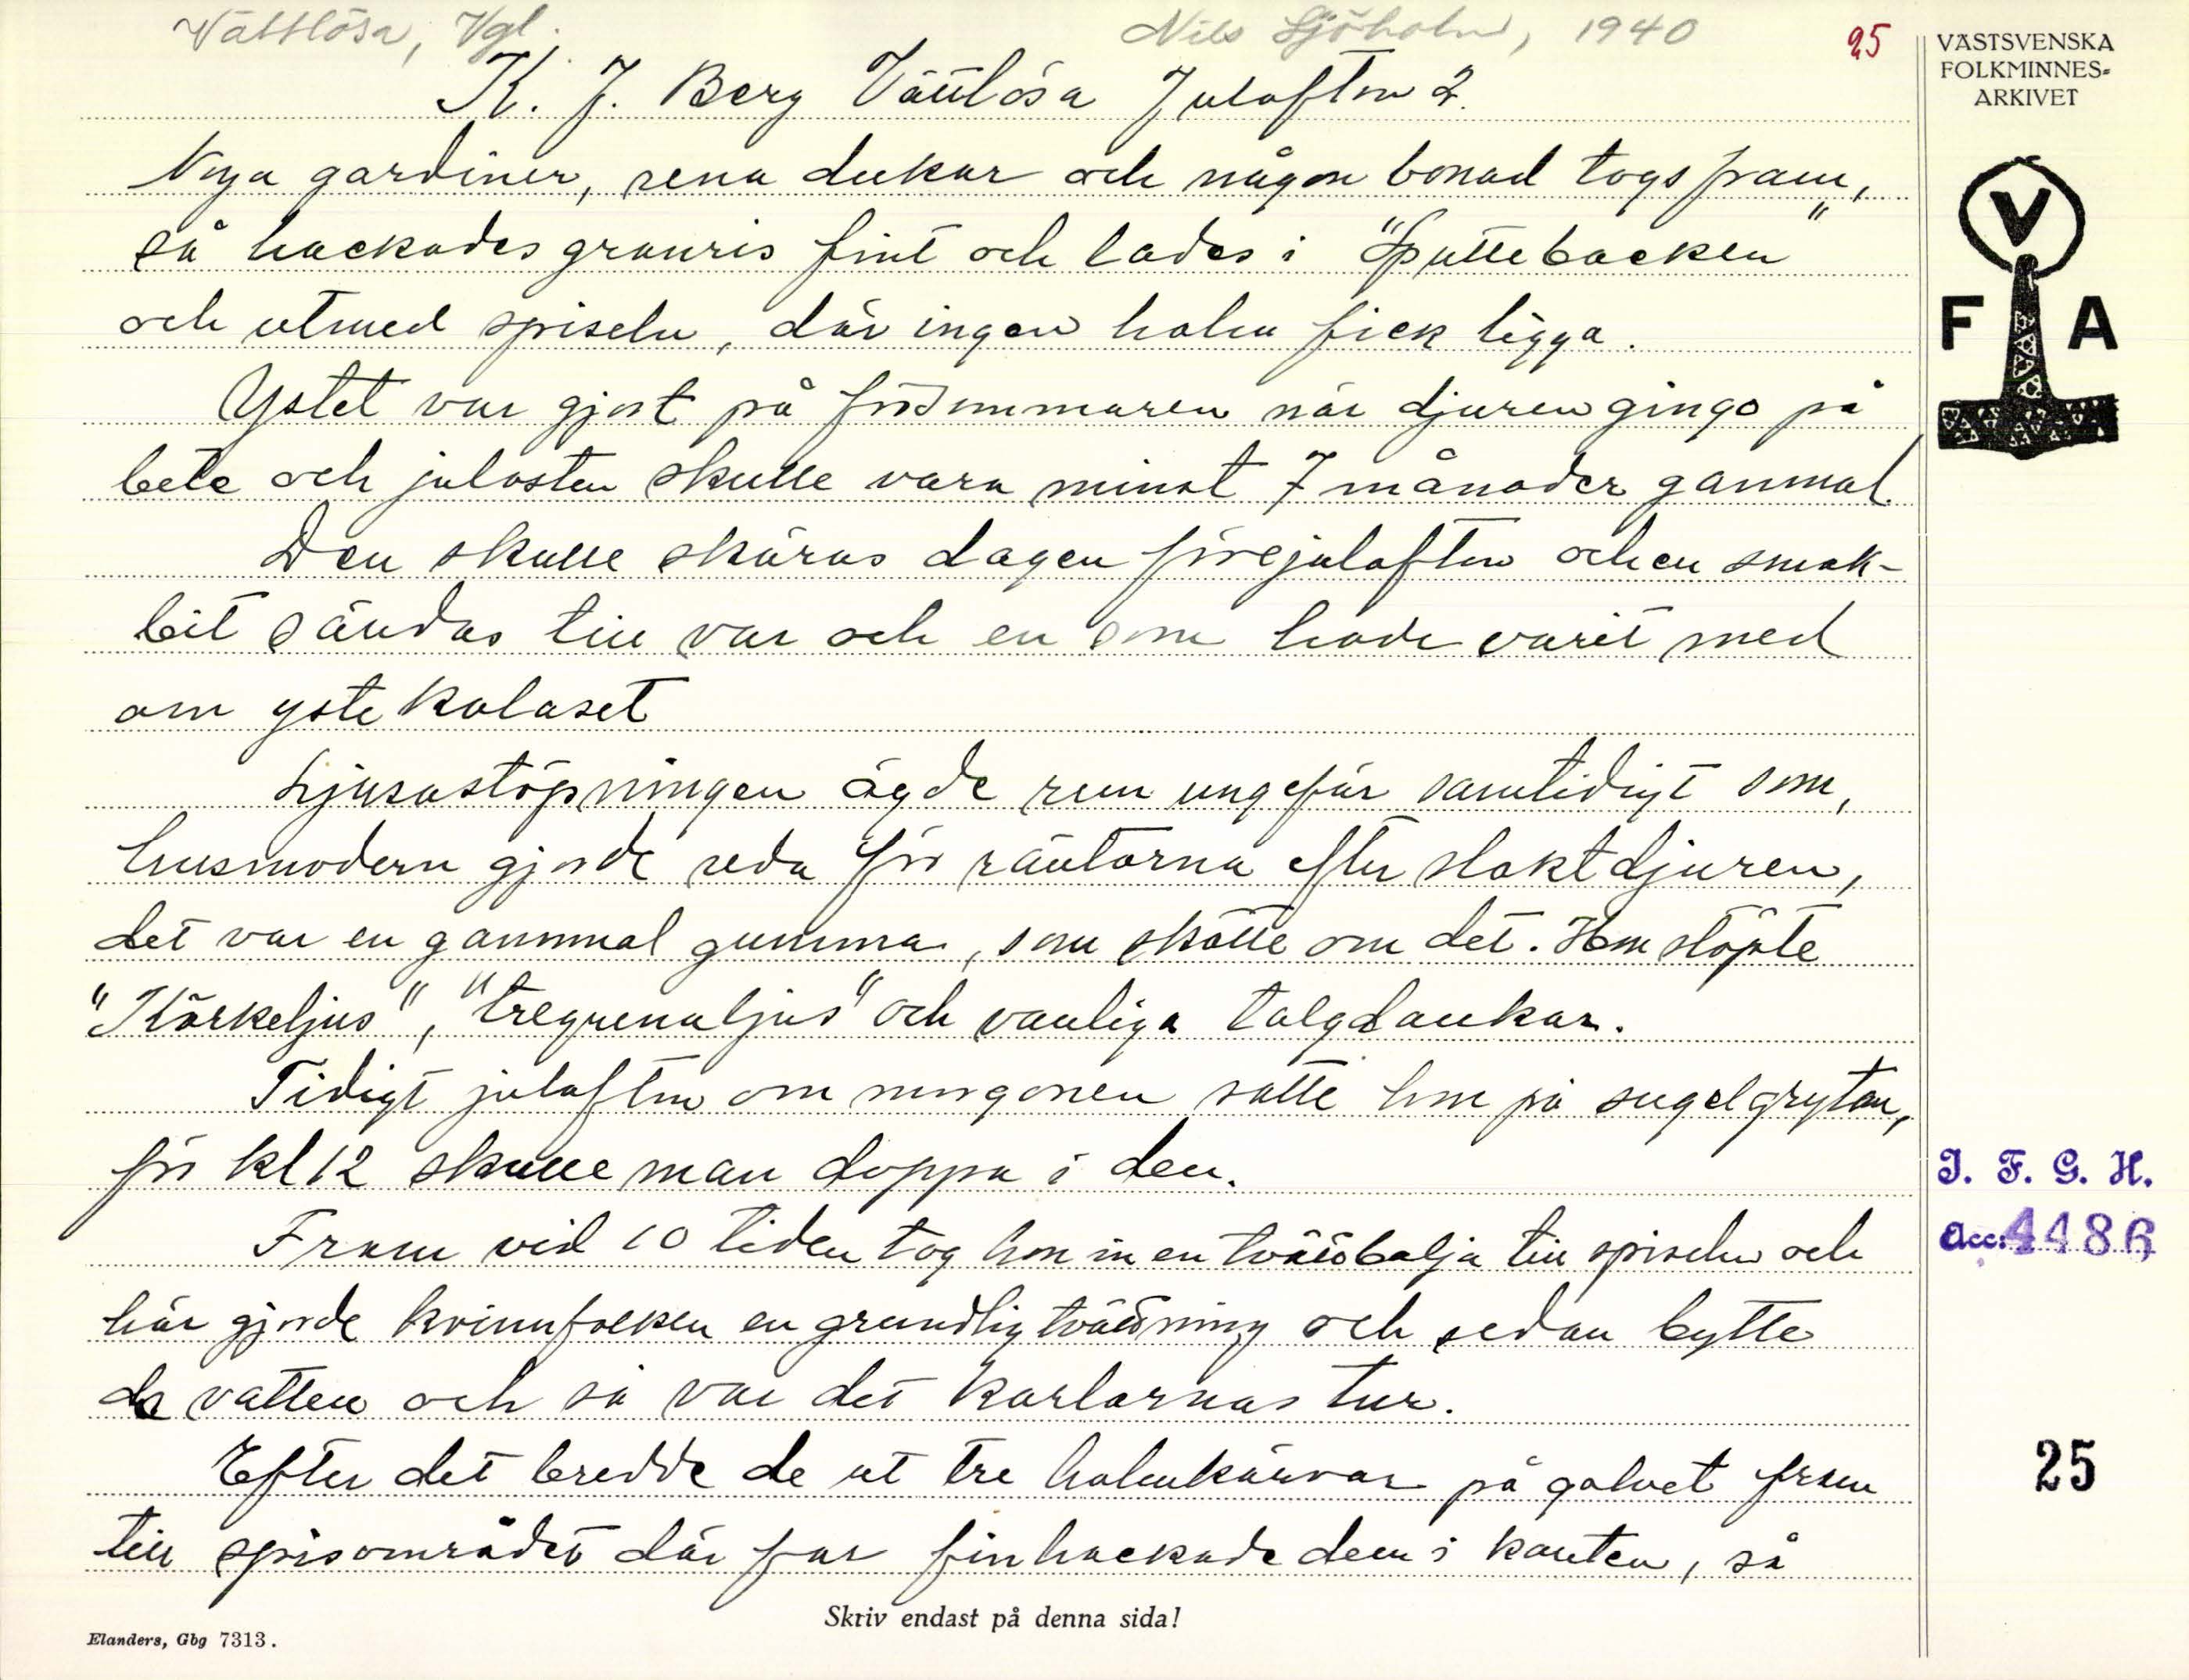 Vättlösa, Vgl.
Nils Sjöholm, 1940
25
VÄSTSVENSKA
FOLKMINNES-
ARKIVET
K. J. Berg Vättlösa Julafton 2.
Nya gardiner, rena dukar och någon bonad togs fram,
så hackades granris fint och lades i "Sputtebacken"
och utmed spiseln, där ingen halm fick ligga.
V
F A
Ystet var gjort på försommaren när djuren gingo på
bete och julosten skulle vara minst 7 månader gammal
Den skulle skäras dagen före julafton och en smak-
bit sändas till var och en som hade varit med
om ystekalaset
Ljusastöpningen ägde rum ungefär samtidigt som,
husmodern gjorde reda för räntorna efter slaktdjuren,
det var en gammal gumma, som skötte om det. Hon stöpte
"Körkeljus", "tregrenaljus" och vanliga talgdankar.
Tidigt julafton om morgonen satte hon på sugelgrytan,
för kl 12 skulle man doppa i den.
J. F. G. H.
Acc: 4486
Fram vid 10 tiden tog hon in en tvättbalja till spiseln och
här gjorde kvinnfolken en grundlig tvättning och sedan bytte
de vatten och så var det karlarnas tur.
Efter det bredde de ut tre halmkärvar på golvet fram
till spisområdet där far finhackade dem i kanten, så
25
Skriv endast på denna sida!
Elanders, Gbg 7313.